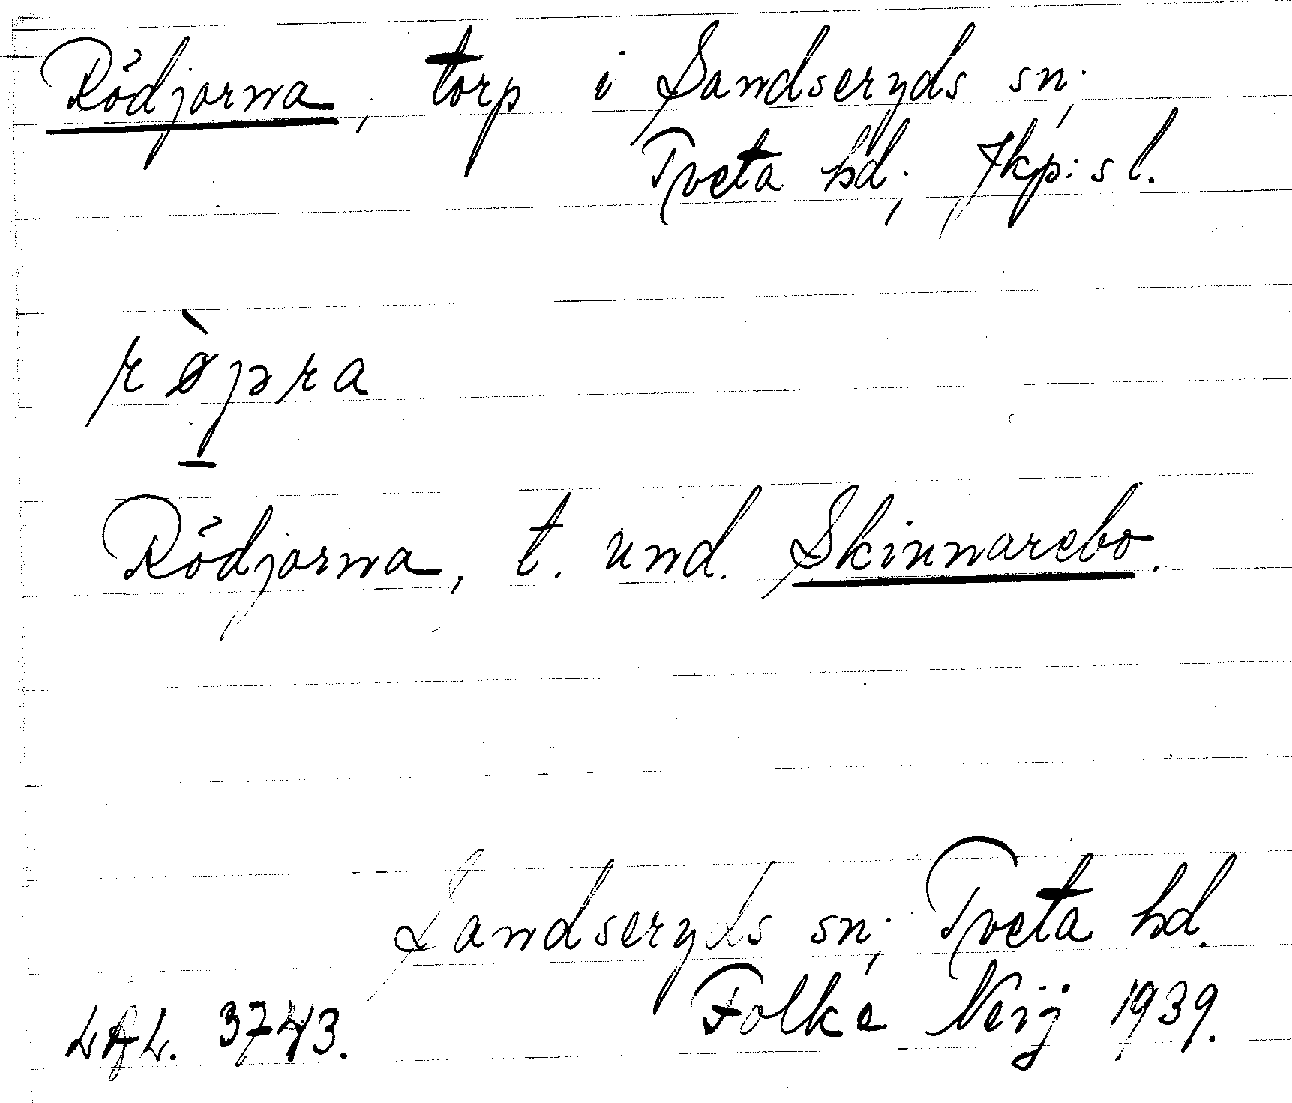 Rödjorna, torp i Sandseryds sn;
Tveta hd; Jkp:s l.
rø̀jəra
Rödjorna, t. und. Skinnarebo.
Sandseryds sn; Tveta hd.
LAL. 3743. Folke Neij 1939.